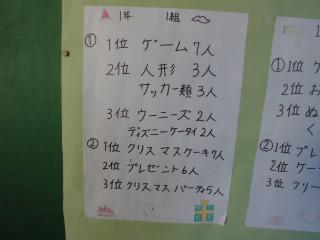 1年 1組
① 1位 ゲーム 7人
2位 人形 3人
サッカー類 3人
3位 ウーニーズ 2人
ディズニーケータイ 2人
② 1位 クリスマスケーキ 7人
2位 プレゼント 6人
3位 クリスマスパーティ 5人
① 1位
2位 お
3位 ぬ
く
② 1位 プレ
2位 ケー
3位 ツリー